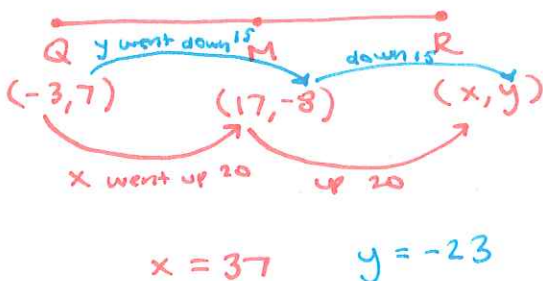 Q M R
y went down 15 down 15
(-3,7) (17,-8) (x,y)
x went up 20 up 20
x = 37 y = -23